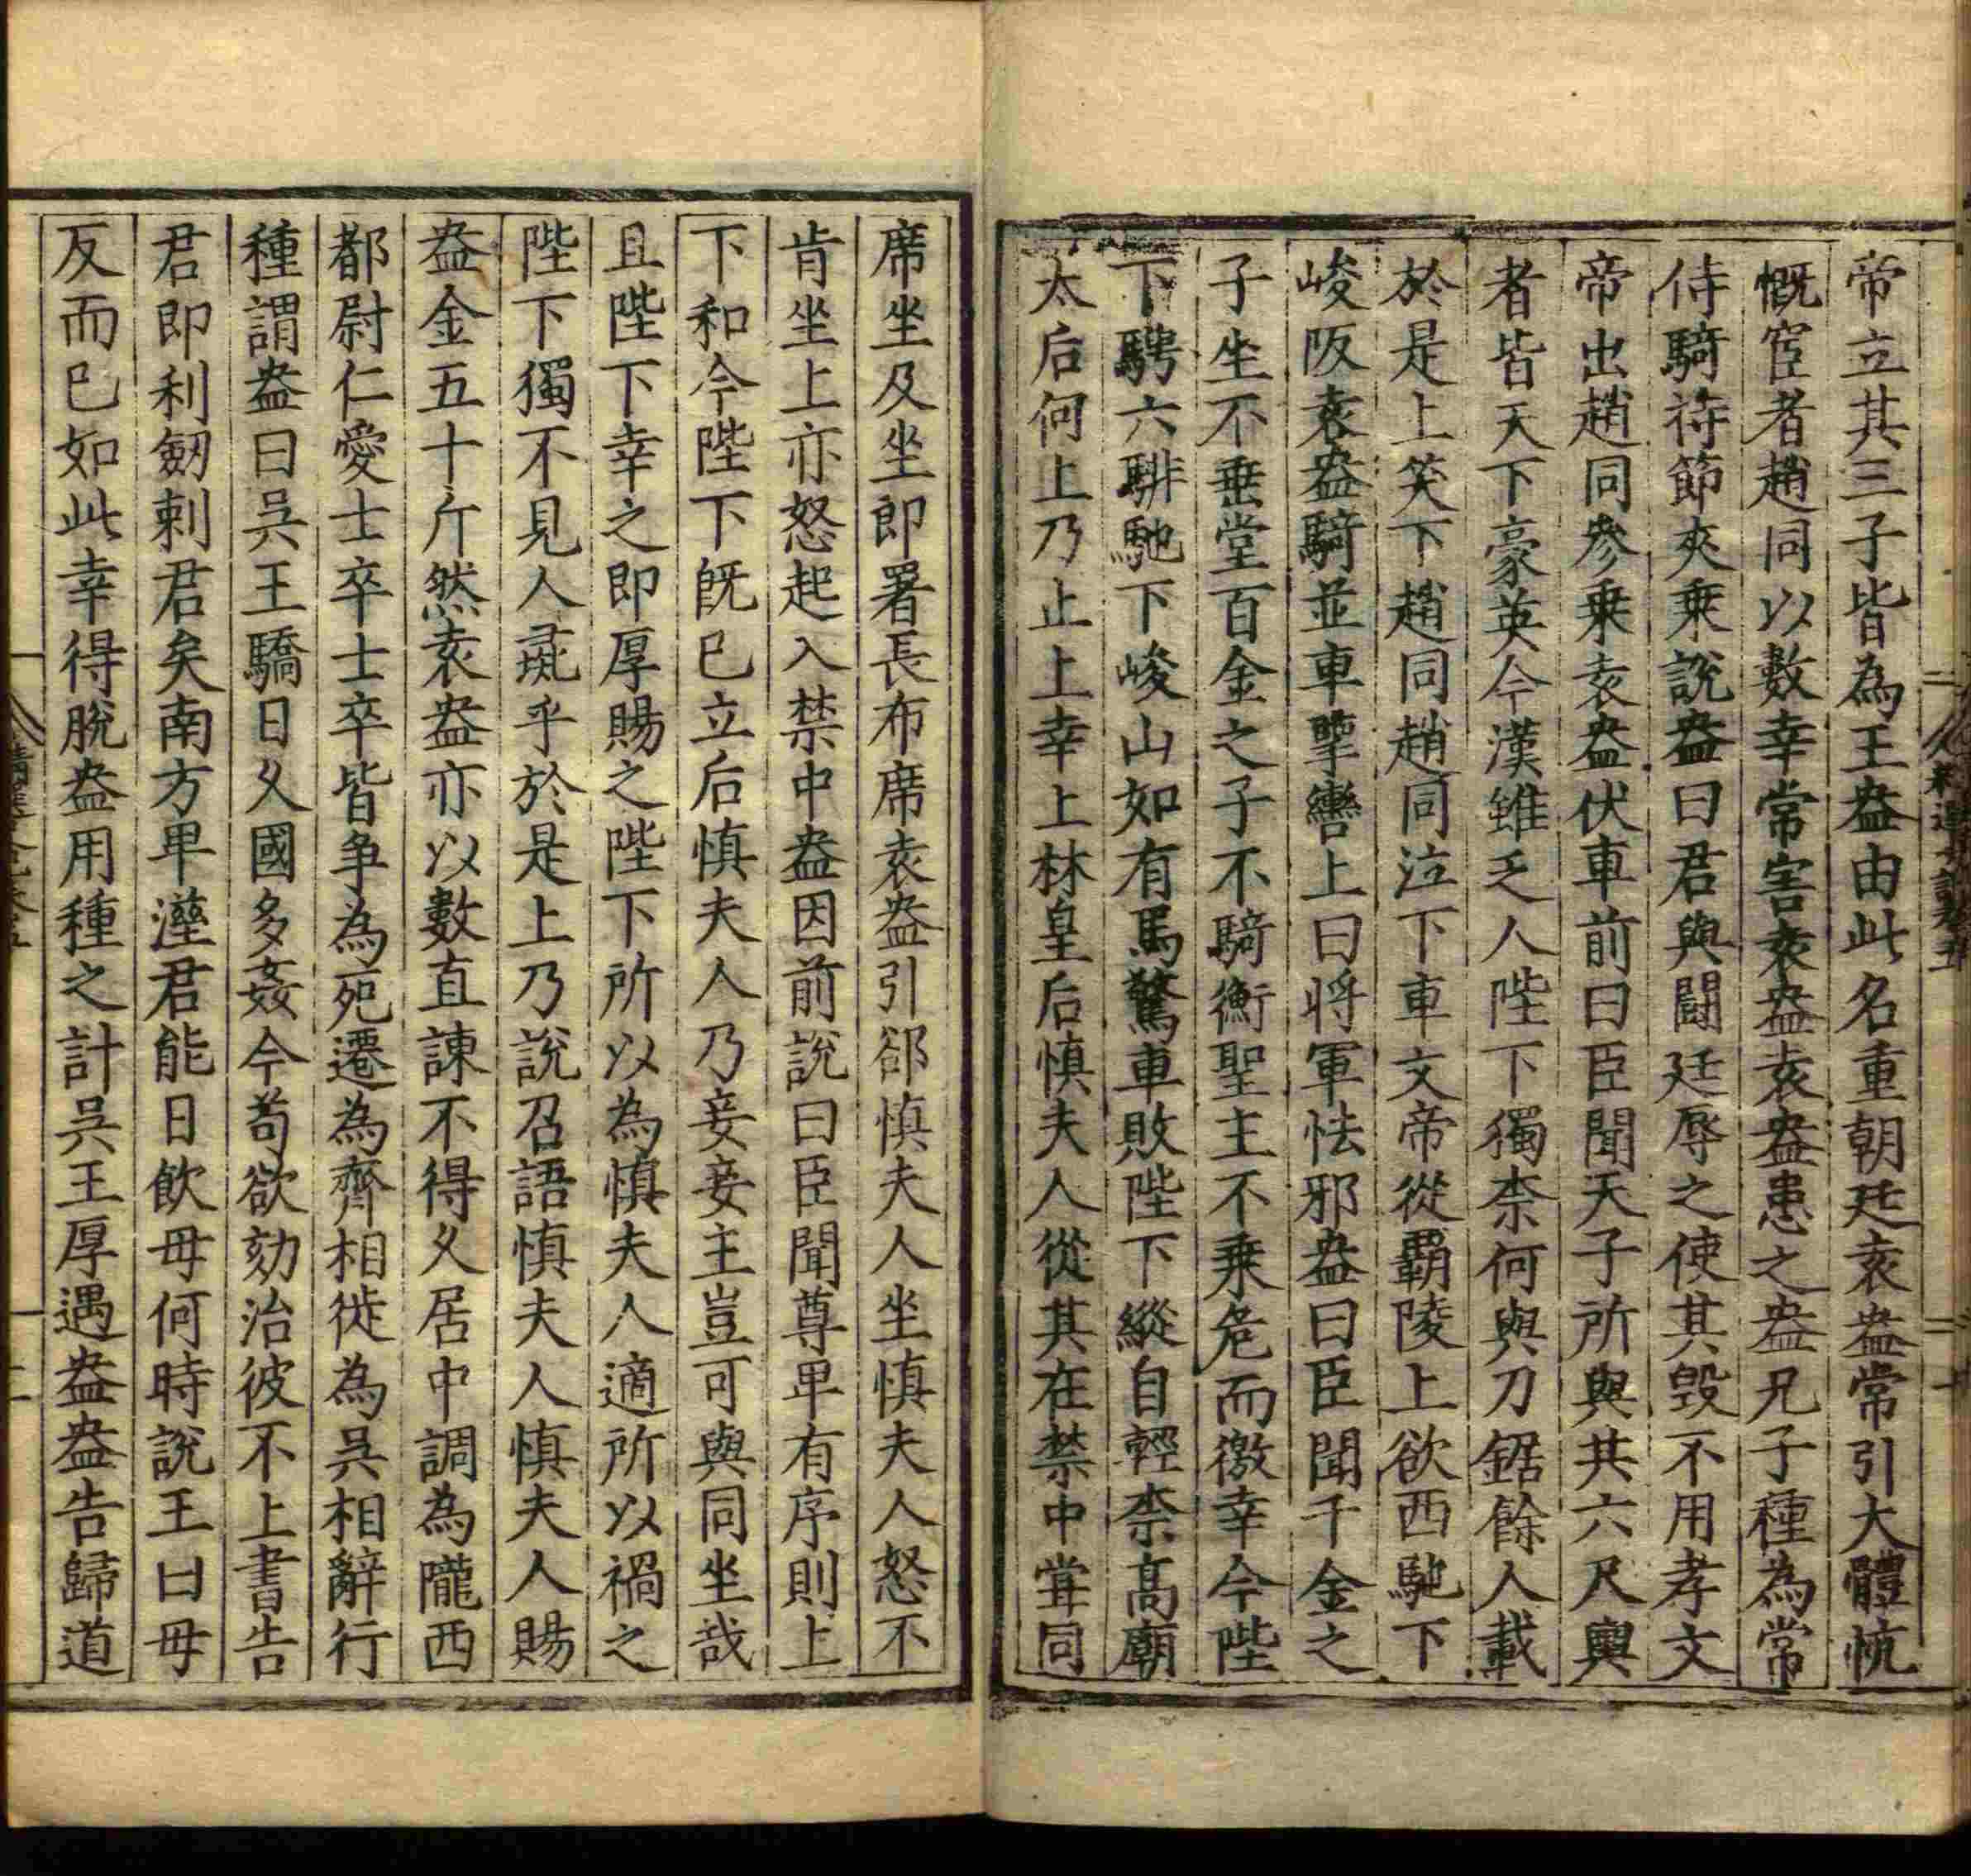 帝立其三子皆為王盎由此名重朝廷袁盎常引大體忼
慨宦者趙同以數幸常害袁盎袁盎患之盎兄子種為常
侍騎持節夾乗說盎曰君與闘廷辱之使其毀不用孝文
帝出趙同參乗袁盎伏車前曰臣聞天子所與共六尺輿
者皆天下豪英今漢雖乏人陛下獨柰何與刀鋸餘人載
於是上笑下趙同趙同泣下車文帝從覇陵上欲西馳下
峻阪袁盎騎並車擥轡上曰將軍怯邪盎曰臣聞千金之
子坐不垂堂百金之子不騎衡聖主不乗危而徼幸今陛
下騁六騑馳下峻山如有馬驚車敗陛下縱自輕柰髙廟
太后何上乃止上幸上林皇后慎夫人從其在禁中甞同
席坐及坐郎署長布席袁盎引郤慎夫人坐慎夫人怒不
肯坐上亦怒起入禁中盎因前說曰臣聞尊卑有序則上
下和今陛下旣已立后慎夫人乃妾妾主豈可與同坐哉
且陛下幸之即厚賜之陛下所以為慎夫人適所以禍之
陛下獨不見人彘乎於是上乃說召語慎夫人慎夫人賜
盎金五十斤然袁盎亦以數直諫不得乆居中調為隴西
都尉仁愛士卒士卒皆争為死遷為齊相徙為吳相辭行
種謂盎曰吳王驕日乆國多姦今苟欲劾治彼不上書告
君即利劒刺君矣南方卑溼君能日飲毋何時說王曰毋
反而已如此幸得脫盎用種之計吳王厚遇盎盎告歸道